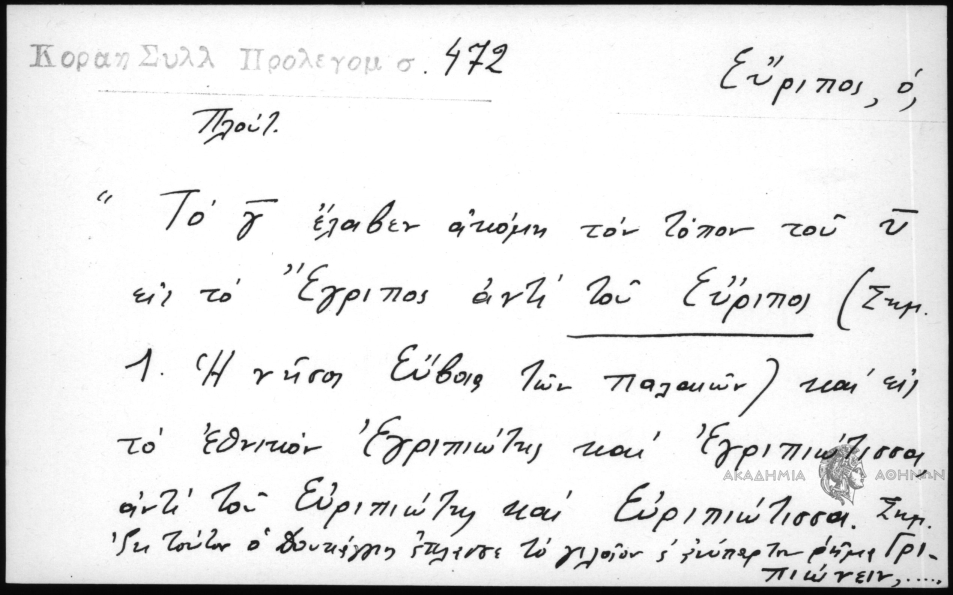 Κοραη Συλλ Προλεγομ σ. 472
Εὔριπος, ὁ,
Πλούτ.
“ Τό γ̅ ἔλαβεν ἀκόμη τόν τόπον τοῦ υ̅
εἰς τό Ἔγριπος ἀντί τοῦ Εὔριπος (Σημ.
1. Ἡ νῆσος Εὔβοια τῶν παλαιῶν) καί εἰς
τό ἐθνικόν Ἐγριπιώτης καί Ἐγριπιώτισσα,
ΑΚΑΔΗΜΙΑ ΑΘΗΝΩΝ
ἀντί τοῦ Εὐριπιώτης καί Εὐριπιώτισσα. Σημ.
Ἐκ τούτου ὁ Δουκάγγιος ἔπλασσε τό γελοῖον ἀνύπαρκτον ῥῆμα Γρι-
πιώνειν,.....